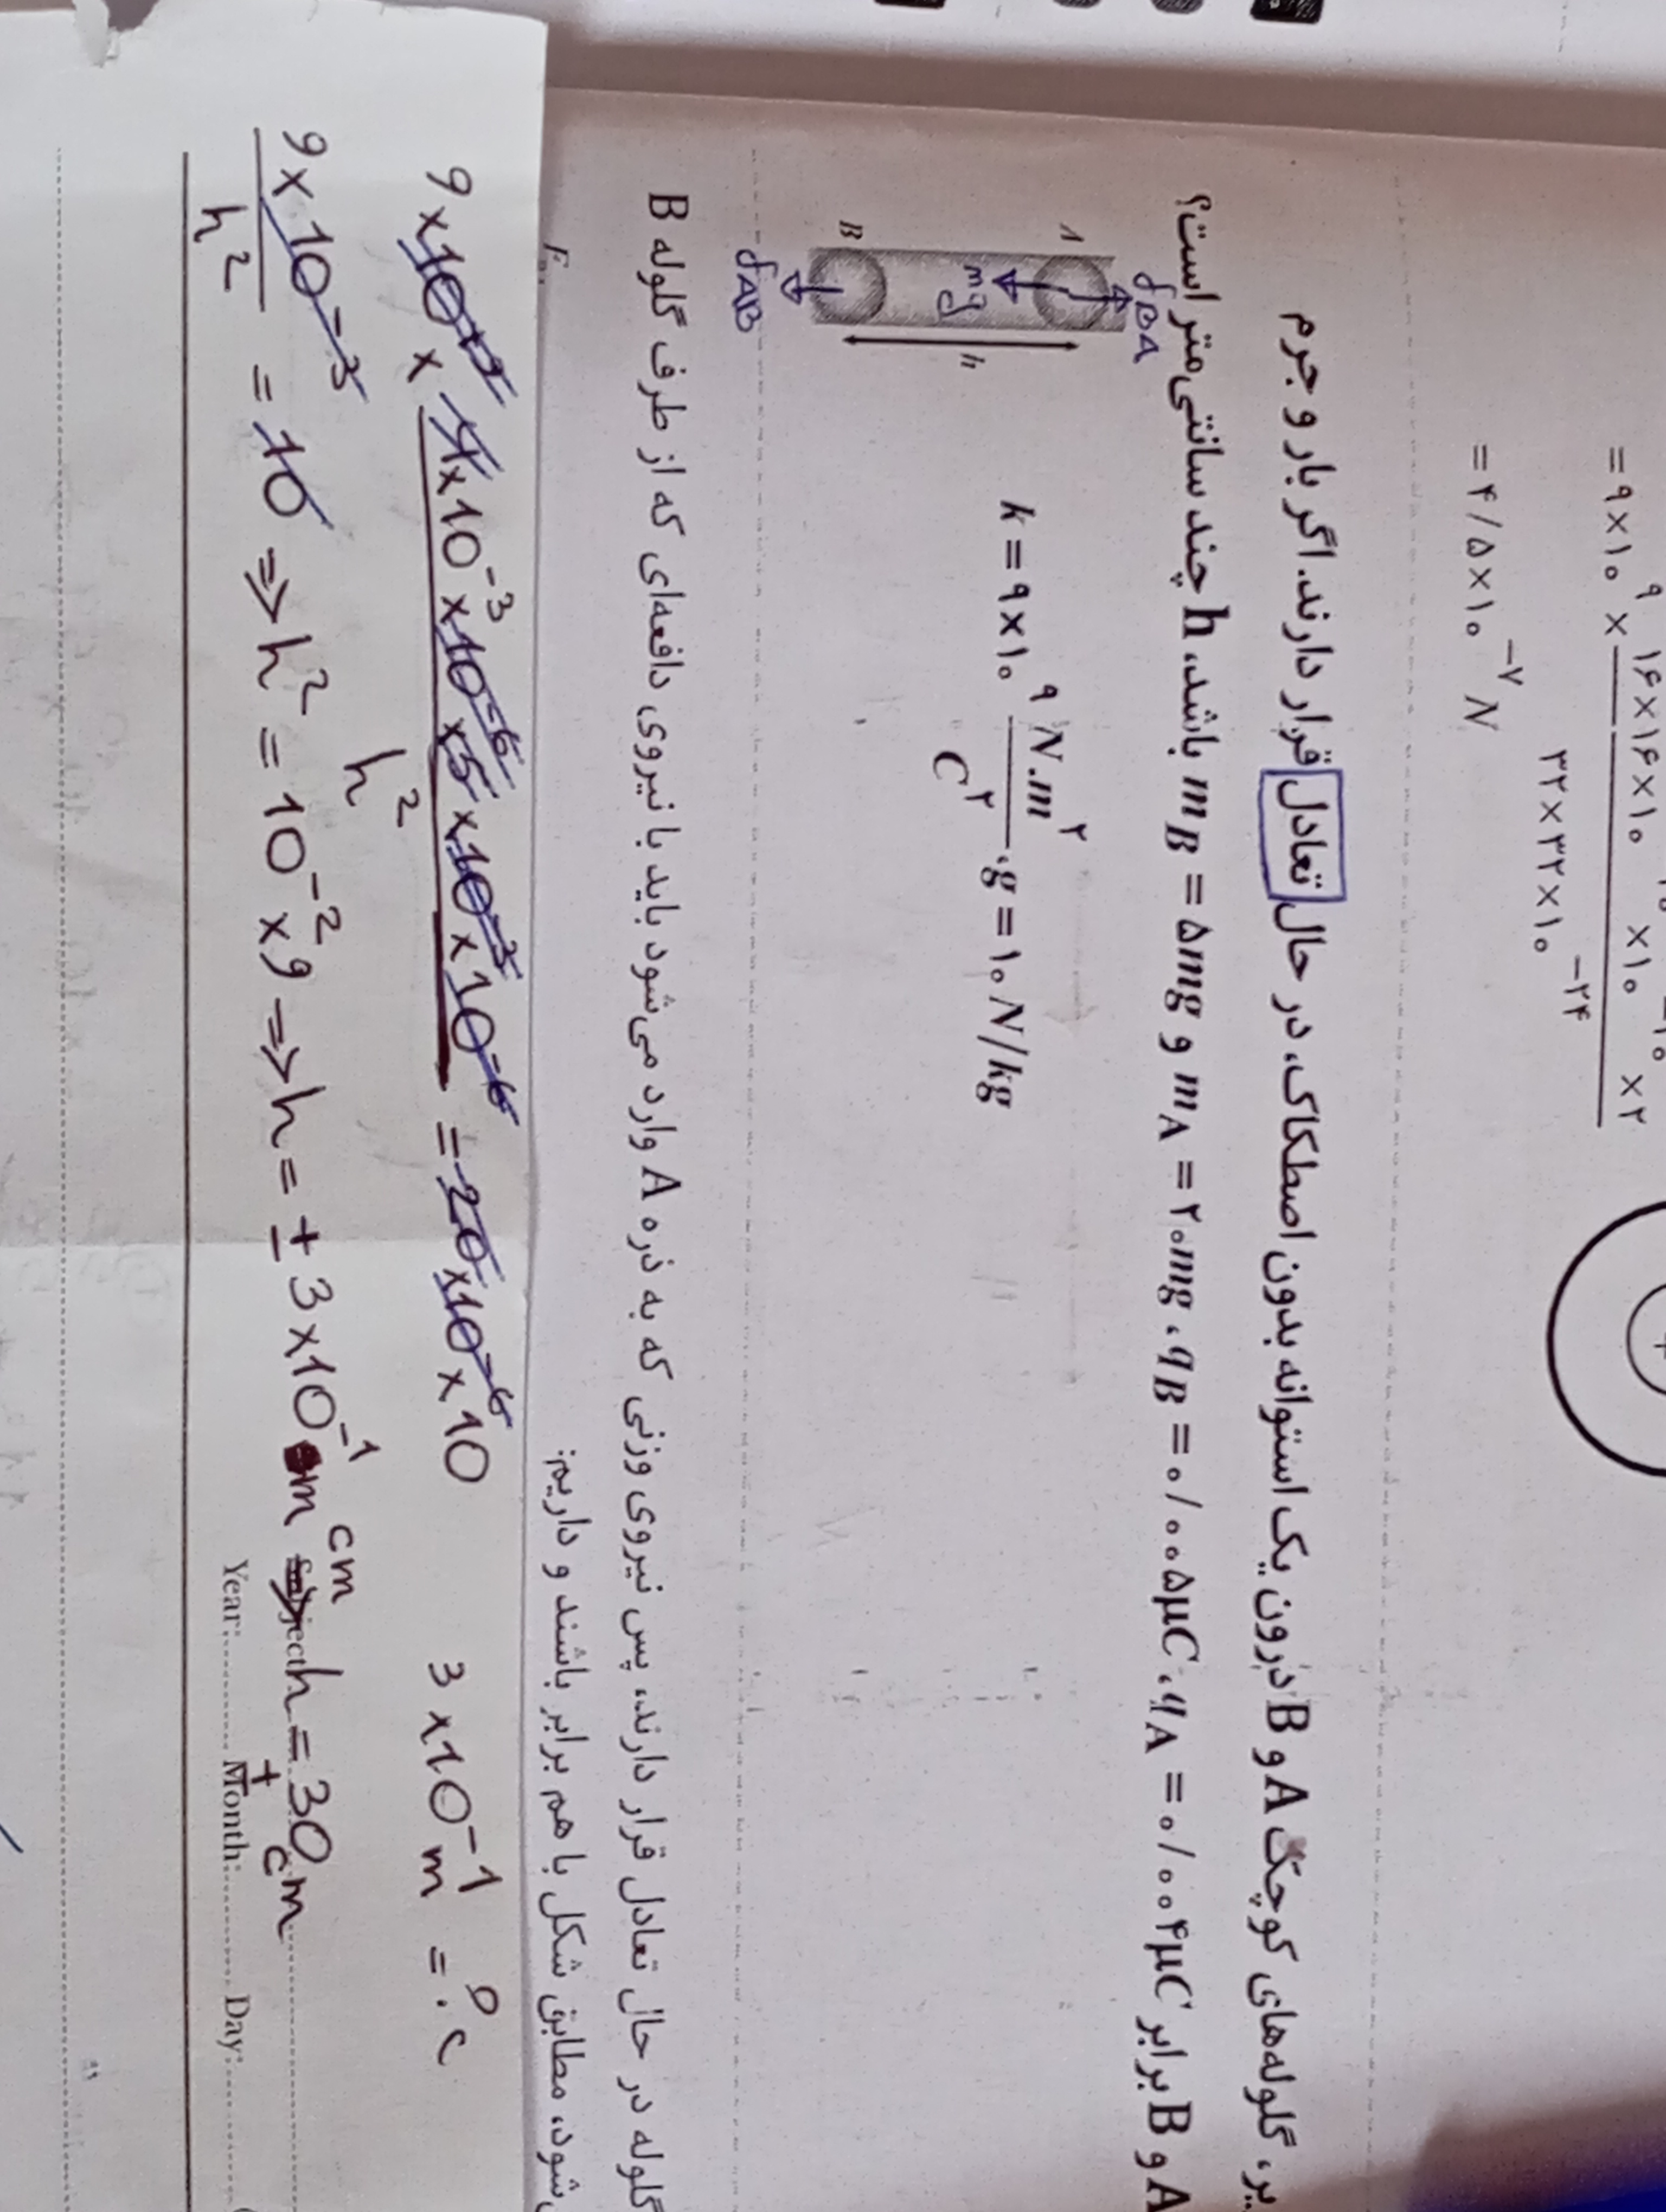 = ۹×۱۰^۹ × (۱۶×۱۶×۱۰ ×۱۰ ×۲)/(۳۲×۳۲×۱۰^-۲۴)
= ۴/۵×۱۰^-۷ N
گلوله‌های کوچک A و B درون یک استوانه بدون اصطکاک، در حال تعادل قرار دارند. اگر بار و جرم
A و B برابر q_A = ۰/۰۰۴μC، q_B = ۰/۰۰۵μC، m_A = ۲۰mg و m_B = ۵mg باشد، h چند سانتی‌متر است؟
k = ۹×۱۰^۹ N.m^۲/C^۲ ، g = ۱۰ N/kg
f_BA
A
mg
h
B
f_AB
گلوله در حال تعادل قرار دارند، پس نیروی وزنی که به ذره A وارد می‌شود باید با نیروی دافعه‌ای که از طرف گلوله B
شود، مطابق شکل با هم برابر باشند و داریم:
9×10^+9 × (4×10^-3×10^-6×5×10^-3×10^-6)/h^2 = 20×10^-6×10
3×10^-1 m = ? c
9×10^-3/h^2 = 10 ⇒ h^2 = 10^-2×9 ⇒ h = ±3×10^-1 m cm ⇒ h = ±30 cm
Year: Month: Day: